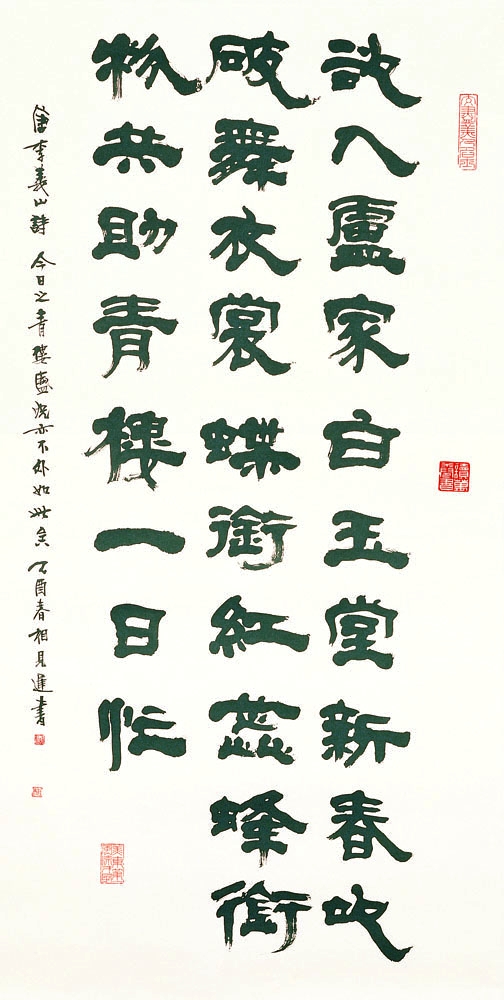 欲入盧家白玉堂新春吹
破舞衣裳蝶銜紅蕊蜂銜
粉共助青樓一日忙
唐李義山詩 今日之青樓盛況亦不外如此矣 乙酉春相見遲書